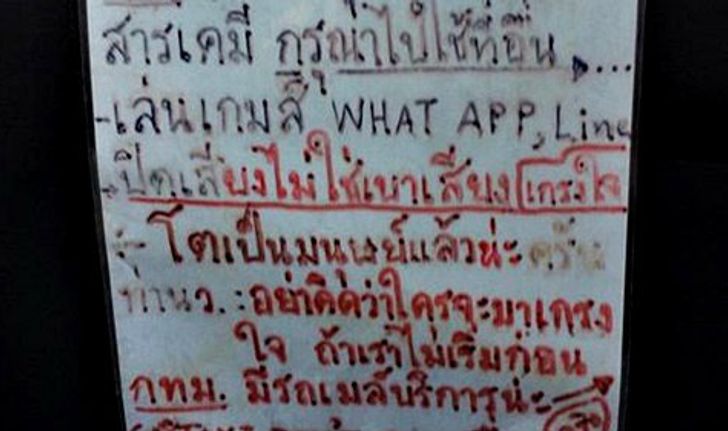 สารเคมี กรุณาไปใช้ที่อื่น,....
-เล่นเกมส์ WHAT APP, Line
-ปิดเสียงไม่ใช่เบาเสียง เกรงใจ
- โตเป็นมนุษย์แล้วน่ะ ครับ
ท่านว. : อย่าคิดว่าใครจะมาเกรง
ใจ ถ้าเราไม่เริ่มก่อน
กทม. มีรถเมล์บริการน่ะ